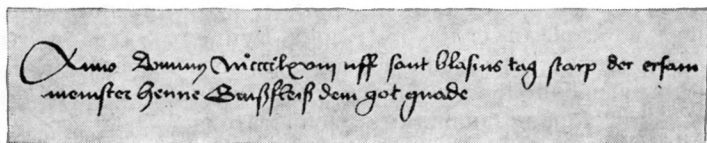 Anno Domini Mcccclxviij uff sant blasius tag starp der ersam
meinster henne Ginßfleiß dem got gnade